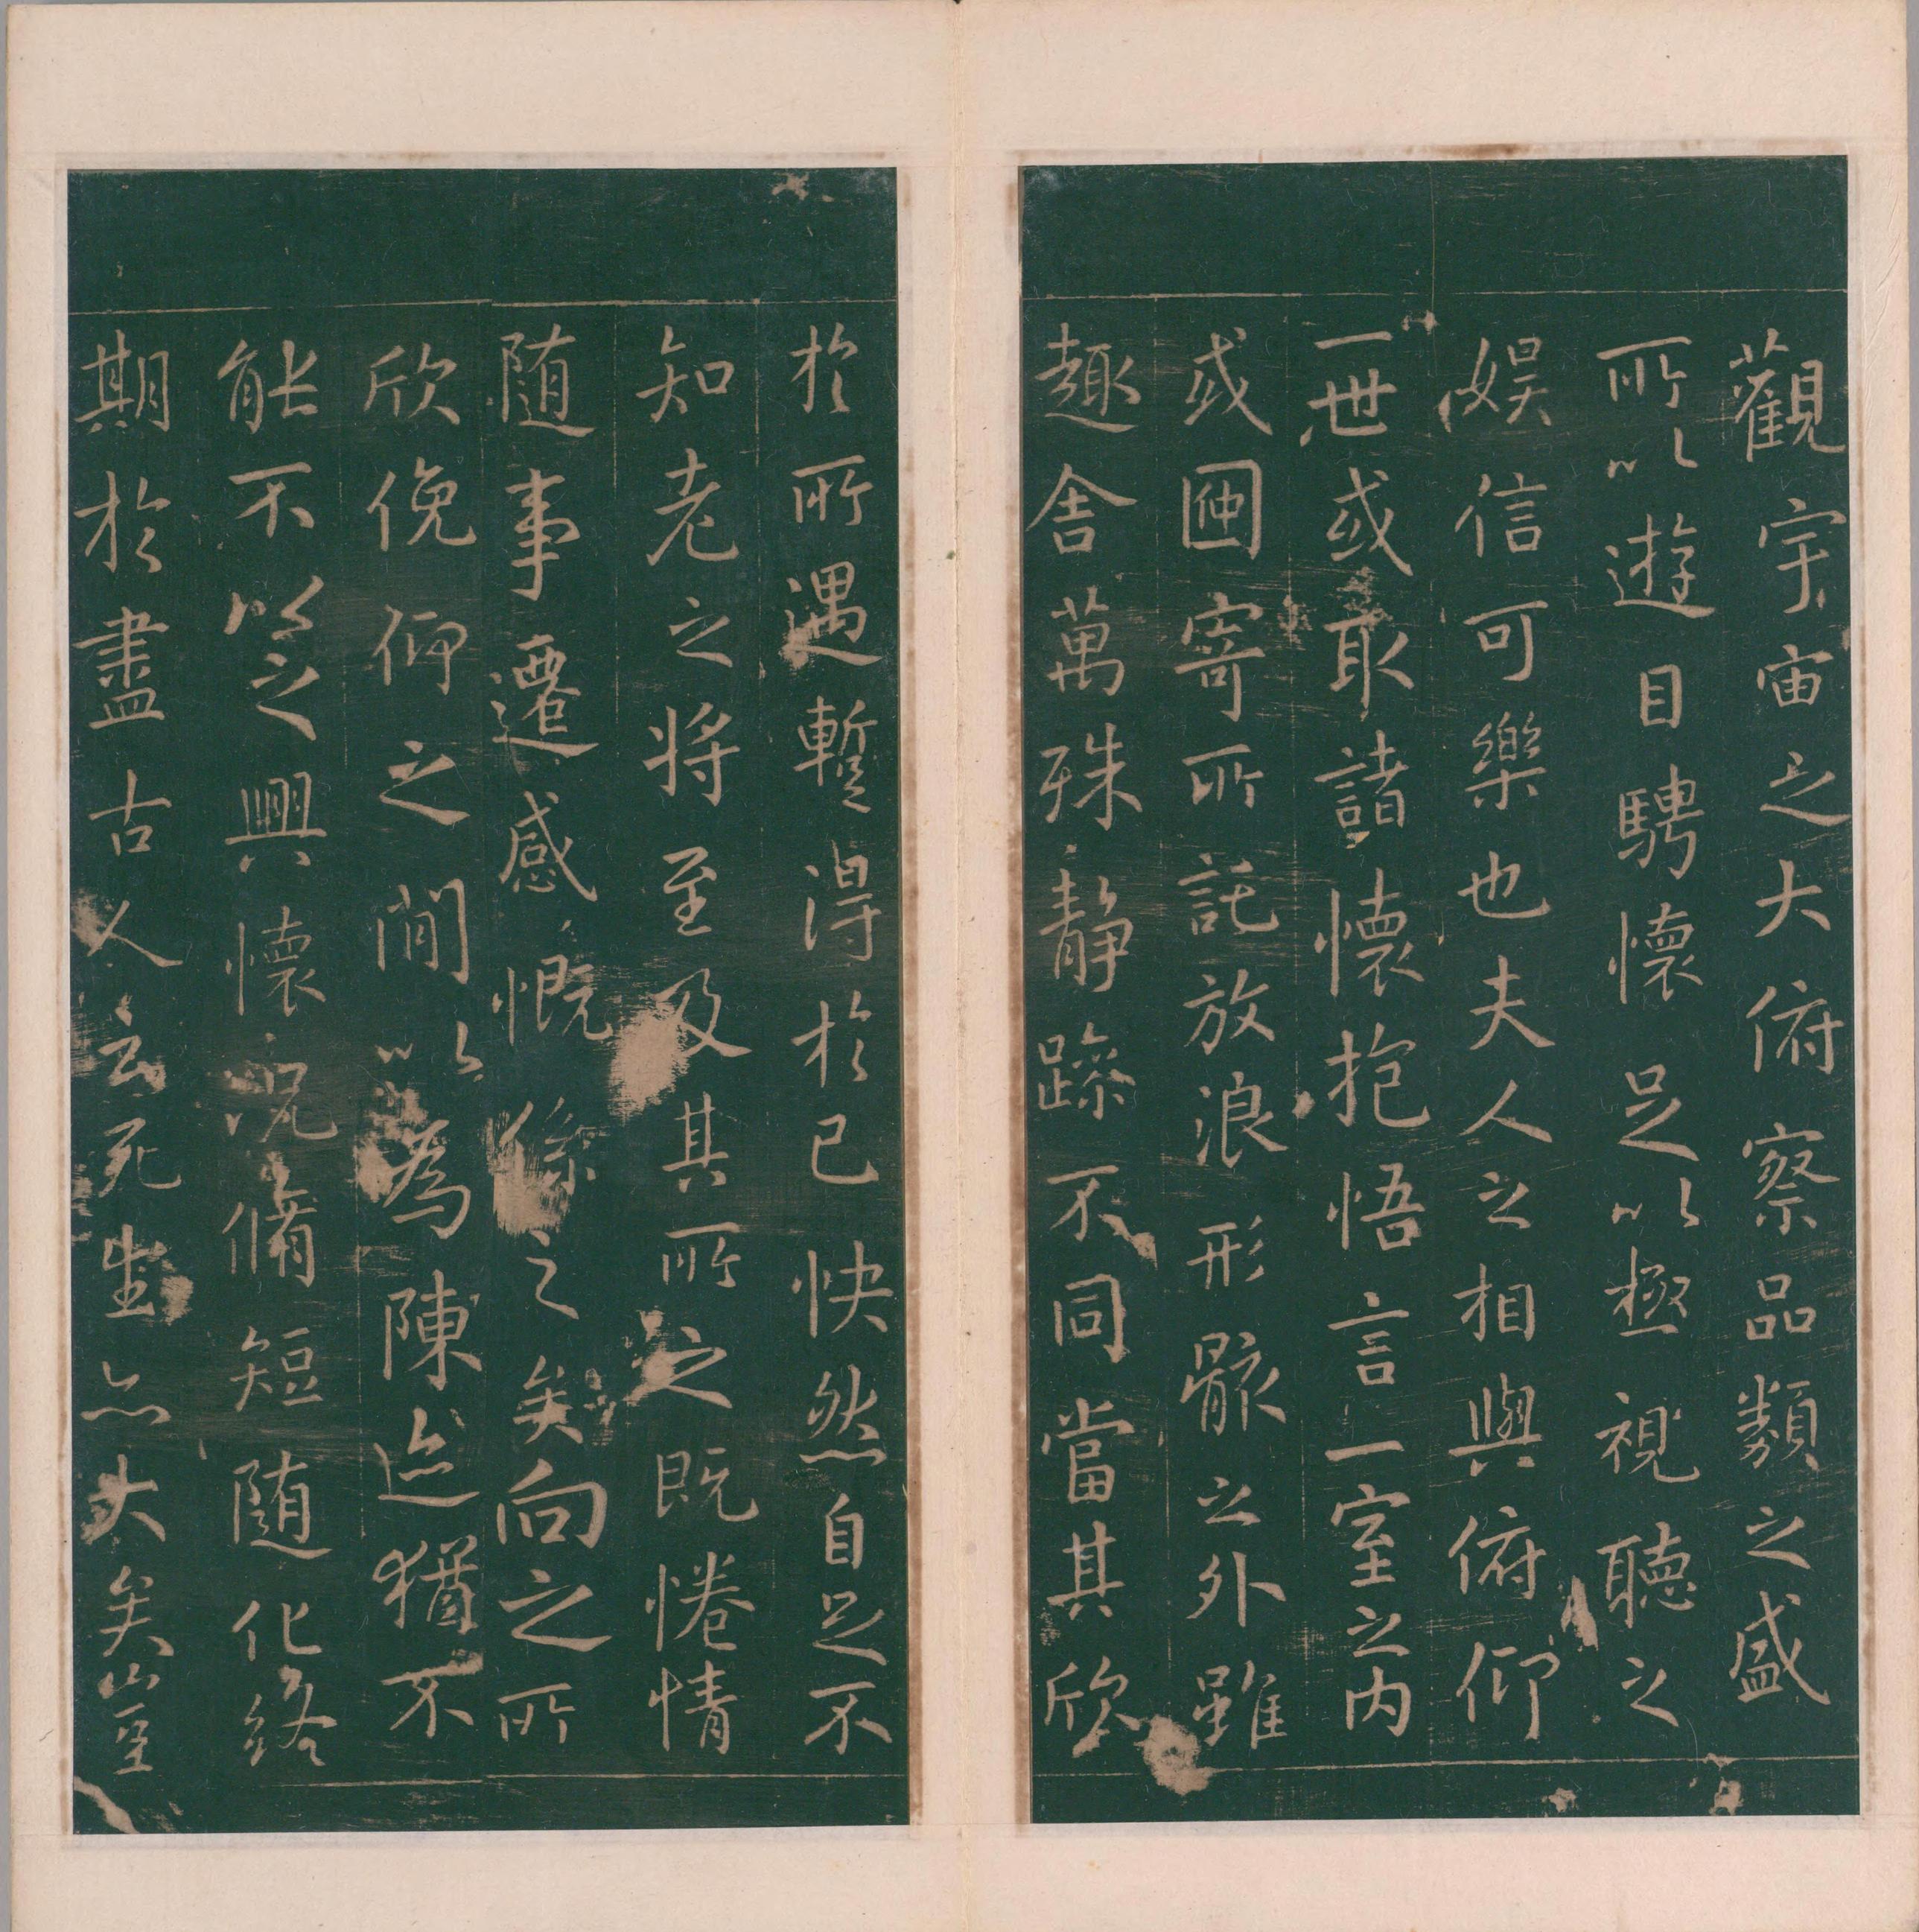 觀宇宙之大俯察品類之盛
所以遊目騁懷足以極視聽之
娛信可樂也夫人之相與俯仰
一世或取諸懷抱悟言一室之內
或因寄所託放浪形骸之外雖
趣舍萬殊靜躁不同當其欣
於所遇暫得於己快然自足不
知老之將至及其所之既惓情
随事遷感慨係之矣向之所
欣俛仰之閒以為陳迹猶不
能不以之興懷況脩短随化終
期於盡古人云死生亦大矣豈